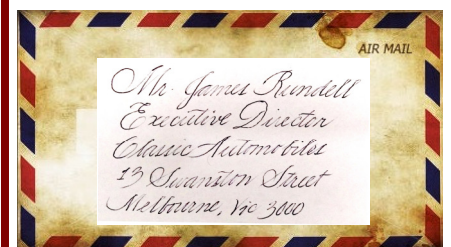 AIR MAIL
Mr. James Rundell
Executive Director
Classic Automobiles
13 Swanston Street
Melbourne, Vic 3000